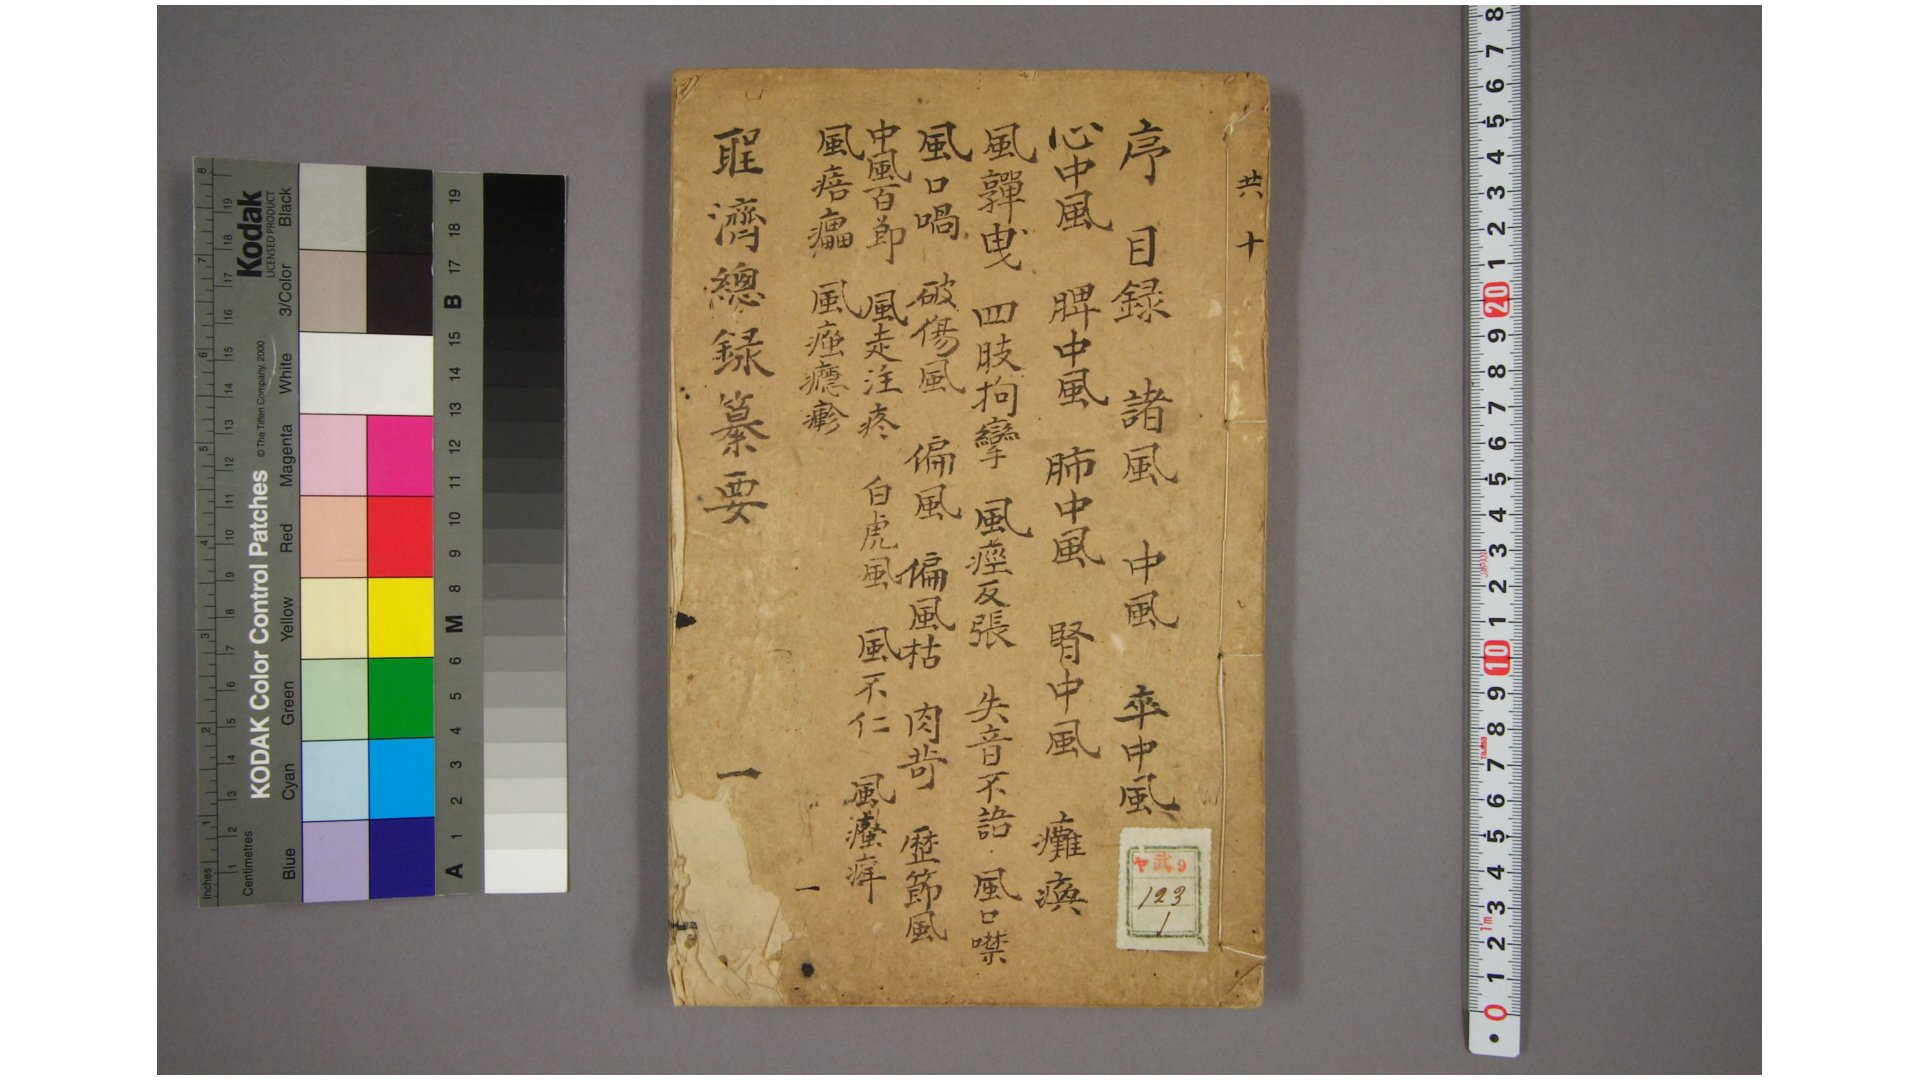 共十
序 目録 諸風 中風 卒中風
心中風 脾中風 肺中風 腎中風 癱瘓
風嚲曳 四肢拘攣 風痙反張 失音不語 風口噤
風口喎 破傷風 偏風 偏風枯 肉苛 歴節風
中風百節 風走注疼 白虎風 風不仁 風瘙痒
風痦㿔 風瘙癮疹 一
聖濟總録纂要 一
ヤ武9
123
1
KODAK Color Control Patches
©The Tiffen Company, 2000
Kodak
LICENSED PRODUCT
Inches
Centimetres
Blue
Cyan
Green
Yellow
Red
Magenta
White
3/Color
Black
A 1 2 3 4 5 6 M 8 9 10 11 12 13 14 15 B 17 18 19
8 7 6 5 4 3 2 1 20 9 8 7 6 5 4 3 2 1 10 9 8 7 6 5 4 3 2 1 0
JAPAN
1m